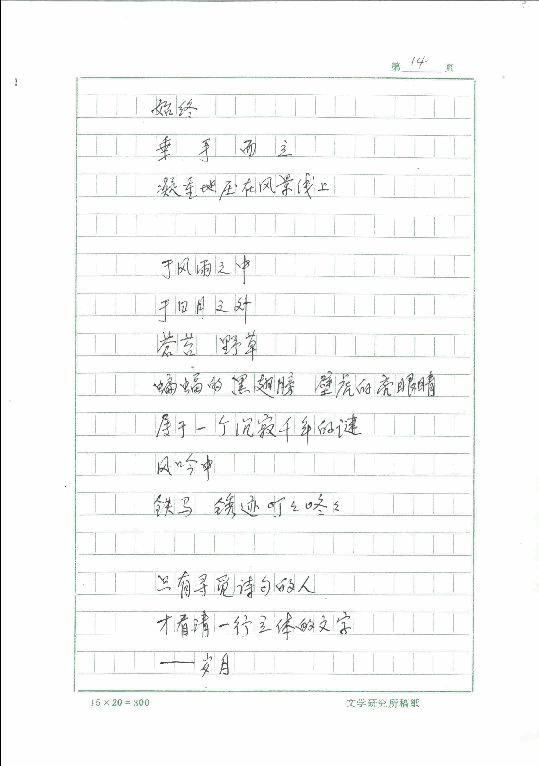 第 14 页
始终
垂 手 而 立
凝重地压在风景线上
于风雨之中
于日月之外
苍苔 野草
蝙蝠的黑翅膀 壁虎的亮眼睛
属于一个沉寂千年的谜
风吟中
铁马 锈迹叮々咚々
只有寻觅诗句的人
才看晴一行立体的文字
——岁月
15×20=300 文学研究所稿纸